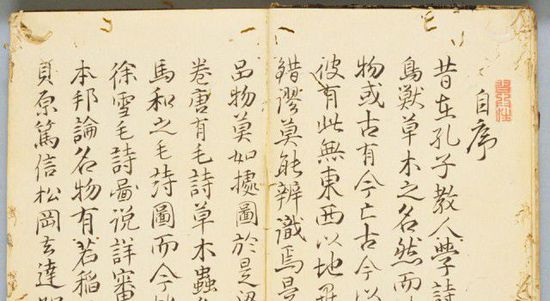 自序
昔在孔子教人學詩
鳥獸草木之名然而
物或古有今亡古今以
彼有此無東西以地
錯謬莫能辨識焉是
品物莫如據圖於是
卷唐有毛詩草木蟲
馬和之毛詩圖而今
徐雪毛詩圖說詳審
本邦論名物有若稲
貝原篤信松岡玄達